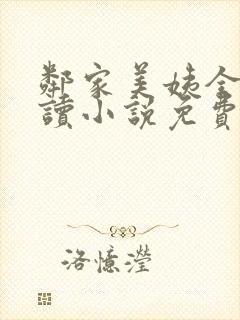 鄰家美姨全
讀小說免費
洛憶瀅